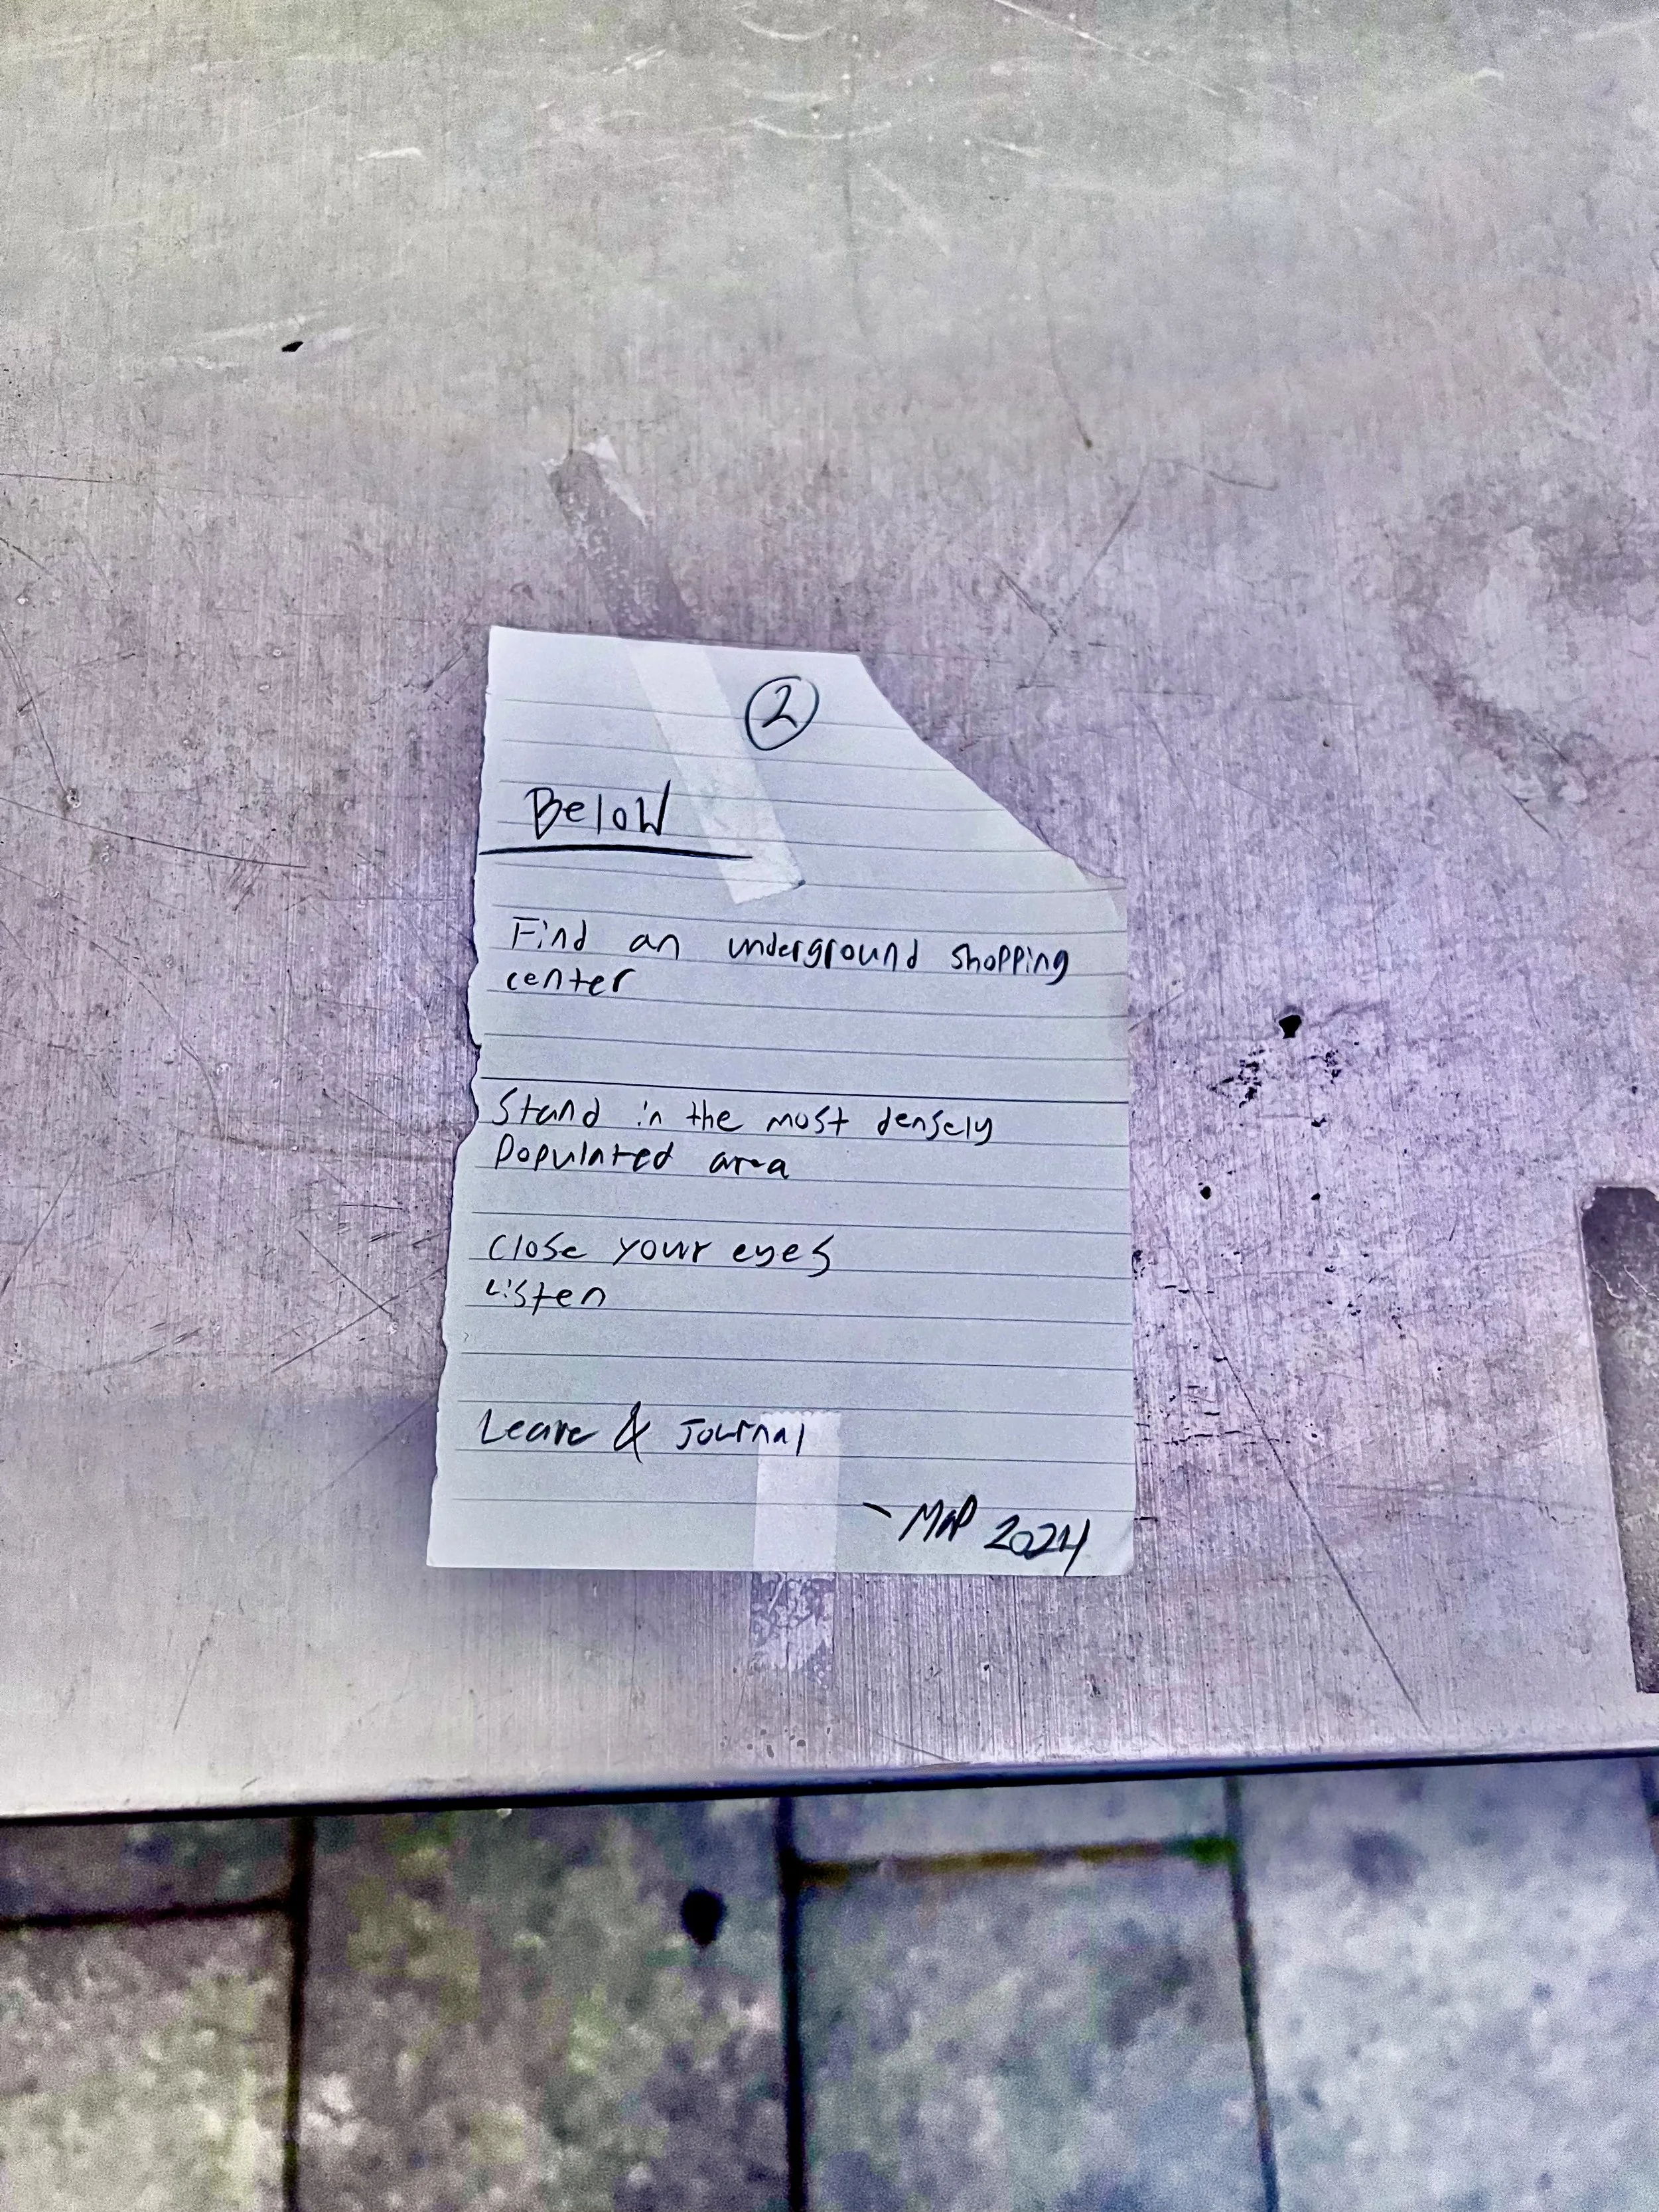 2
Below
Find an underground shopping
center
Stand in the most densely
populated area
Close your eyes
Listen
Leave & Journal
- MAP 2024